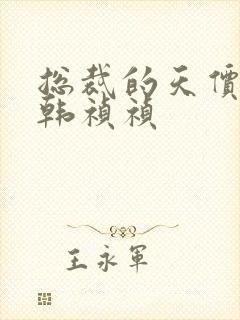 总裁的天價
韩禎禎
王永军